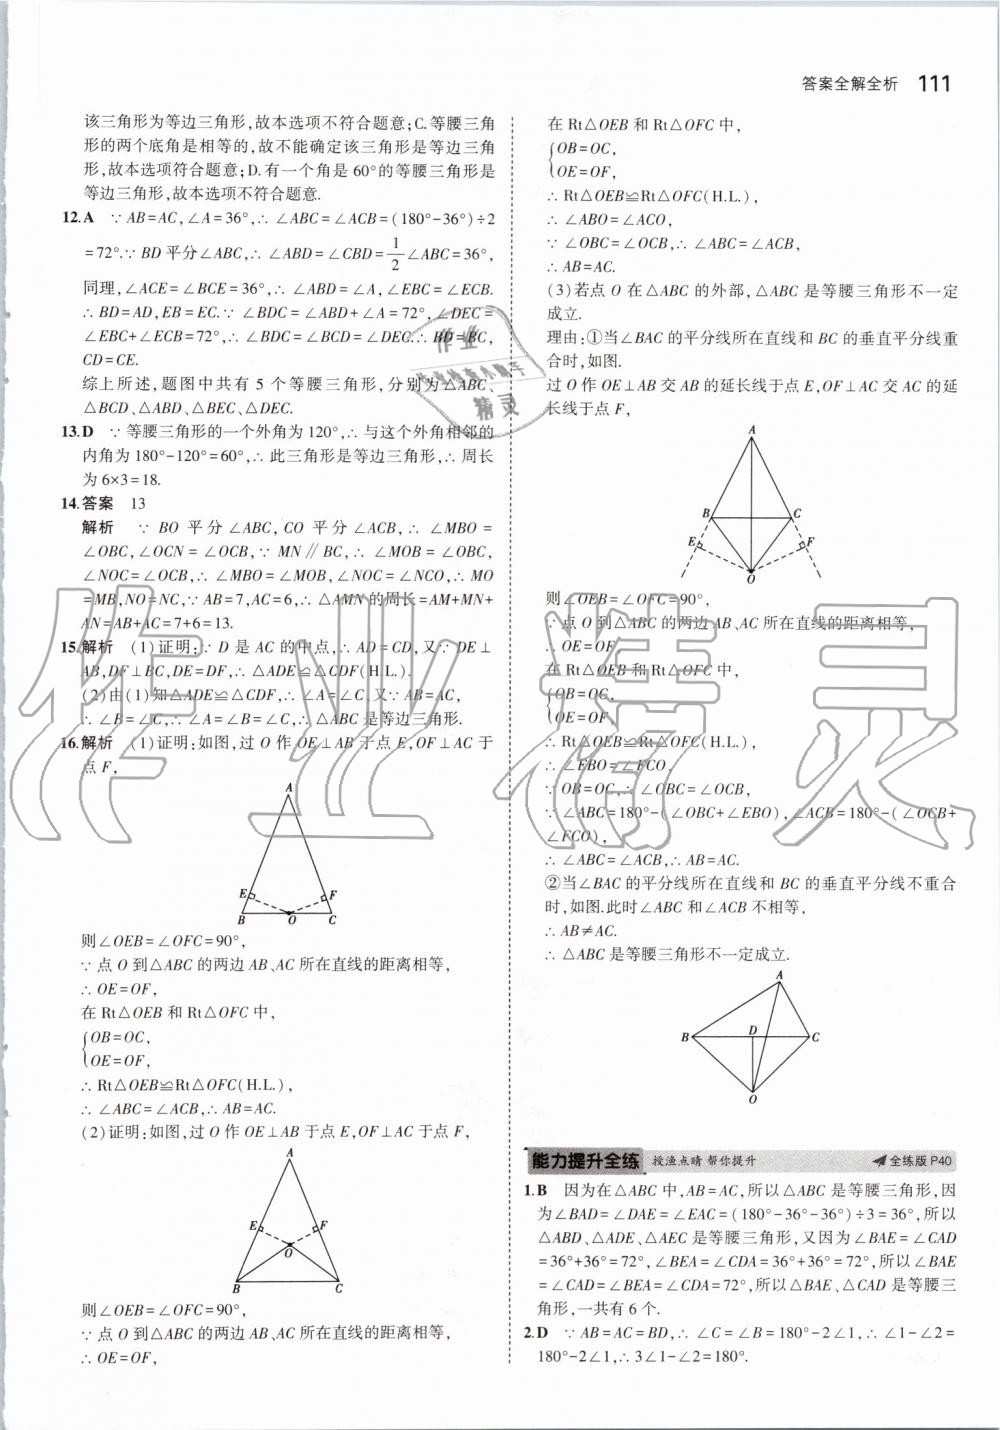 答案全解全析 111
该三角形为等边三角形,故本选项不符合题意;C.等腰三角
形的两个底角是相等的,故不能确定该三角形是等边三角
形,故本选项符合题意;D.有一个角是60°的等腰三角形是
等边三角形,故本选项不符合题意.
12.A ∵AB=AC,∠A=36°,∴∠ABC=∠ACB=(180°-36°)÷2
=72°.∵BD平分∠ABC,∴∠ABD=∠CBD=1/2∠ABC=36°,
同理,∠ACE=∠BCE=36°,∴∠ABD=∠A,∠EBC=∠ECB.
∴BD=AD,EB=EC.∵∠BDC=∠ABD+∠A=72°,∠DEC=
∠EBC+∠ECB=72°,∴∠BDC=∠BCD=∠DEC.∴BD=BC,
CD=CE.
综上所述,题图中共有5个等腰三角形,分别为△ABC、
△BCD、△ABD、△BEC、△DEC.
13.D ∵等腰三角形的一个外角为120°,∴与这个外角相邻的
内角为180°-120°=60°,∴此三角形是等边三角形,∴周长
为6×3=18.
14.答案 13
解析 ∵BO平分∠ABC,CO平分∠ACB,∴∠MBO=
∠OBC,∠OCN=∠OCB,∵MN∥BC,∴∠MOB=∠OBC,
∠NOC=∠OCB,∴∠MBO=∠MOB,∠NOC=∠NCO,∴MO
=MB,NO=NC,∵AB=7,AC=6,∴△AMN的周长=AM+MN+
AN=AB+AC=7+6=13.
15.解析 (1)证明:∵D是AC的中点,∴AD=CD,又∵DE⊥
AB,DF⊥BC,DE=DF,∴△ADE≌△CDF(H.L.).
(2)由(1)知△ADE≌△CDF,∴∠A=∠C.又∵AB=AC,
∴∠B=∠C,∴∠A=∠B=∠C,∴△ABC是等边三角形.
16.解析 (1)证明:如图,过O作OE⊥AB于点E,OF⊥AC于
点F,
A
E F
B O C
则∠OEB=∠OFC=90°,
∵点O到△ABC的两边AB、AC所在直线的距离相等,
∴OE=OF,
在Rt△OEB和Rt△OFC中,
{OB=OC,
OE=OF,
∴Rt△OEB≌Rt△OFC(H.L.),
∴∠ABC=∠ACB,∴AB=AC.
(2)证明:如图,过O作OE⊥AB于点E,OF⊥AC于点F,
A
E F
O
B C
则∠OEB=∠OFC=90°,
∵点O到△ABC的两边AB、AC所在直线的距离相等,
∴OE=OF,
在Rt△OEB和Rt△OFC中,
{OB=OC,
OE=OF,
∴Rt△OEB≌Rt△OFC(H.L.),
∴∠ABO=∠ACO,
∵∠OBC=∠OCB,∴∠ABC=∠ACB,
∴AB=AC.
(3)若点O在△ABC的外部,△ABC是等腰三角形不一定
成立.
理由:①当∠BAC的平分线所在直线和BC的垂直平分线重
合时,如图.
过O作OE⊥AB交AB的延长线于点E,OF⊥AC交AC的延
长线于点F,
A
B C
E F
O
则∠OEB=∠OFC=90°,
∵点O到△ABC的两边AB、AC所在直线的距离相等,
∴OE=OF
在Rt△OEB和Rt△OFC中,
{OB=OC,
OE=OF,
∴Rt△OEB≌Rt△OFC(H.L.),
∴∠EBO=∠FCO,
∵OB=OC,∴∠OBC=∠OCB,
∵∠ABC=180°-(∠OBC+∠EBO),∠ACB=180°-(∠OCB+
∠FCO),
∴∠ABC=∠ACB,∴AB=AC.
②当∠BAC的平分线所在直线和BC的垂直平分线不重合
时,如图.此时∠ABC和∠ACB不相等,
∴AB≠AC.
∴△ABC是等腰三角形不一定成立.
A
B D C
O
能力提升全练 授渔点睛 帮你提升 全练版P40
1.B 因为在△ABC中,AB=AC,所以△ABC是等腰三角形,因
为∠BAD=∠DAE=∠EAC=(180°-36°-36°)÷3=36°,所以
△ABD、△ADE、△AEC是等腰三角形,又因为∠BAE=∠CAD
=36°+36°=72°,∠BEA=∠CDA=36°+36°=72°,所以∠BAE
=∠CAD=∠BEA=∠CDA=72°,所以△BAE、△CAD是等腰三
角形,一共有6个.
2.D ∵AB=AC=BD,∴∠C=∠B=180°-2∠1,∴∠1-∠2=
180°-2∠1,∴3∠1-∠2=180°.
作业精灵